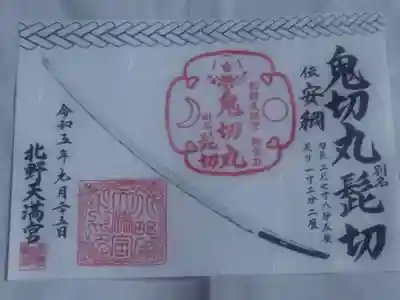 鬼切丸 別名 髭切
伝 安綱
刃長 二尺七寸八分五厘
反り 一寸二分二厘
鬼切丸
別名 髭切
令和五年
北野天満宮